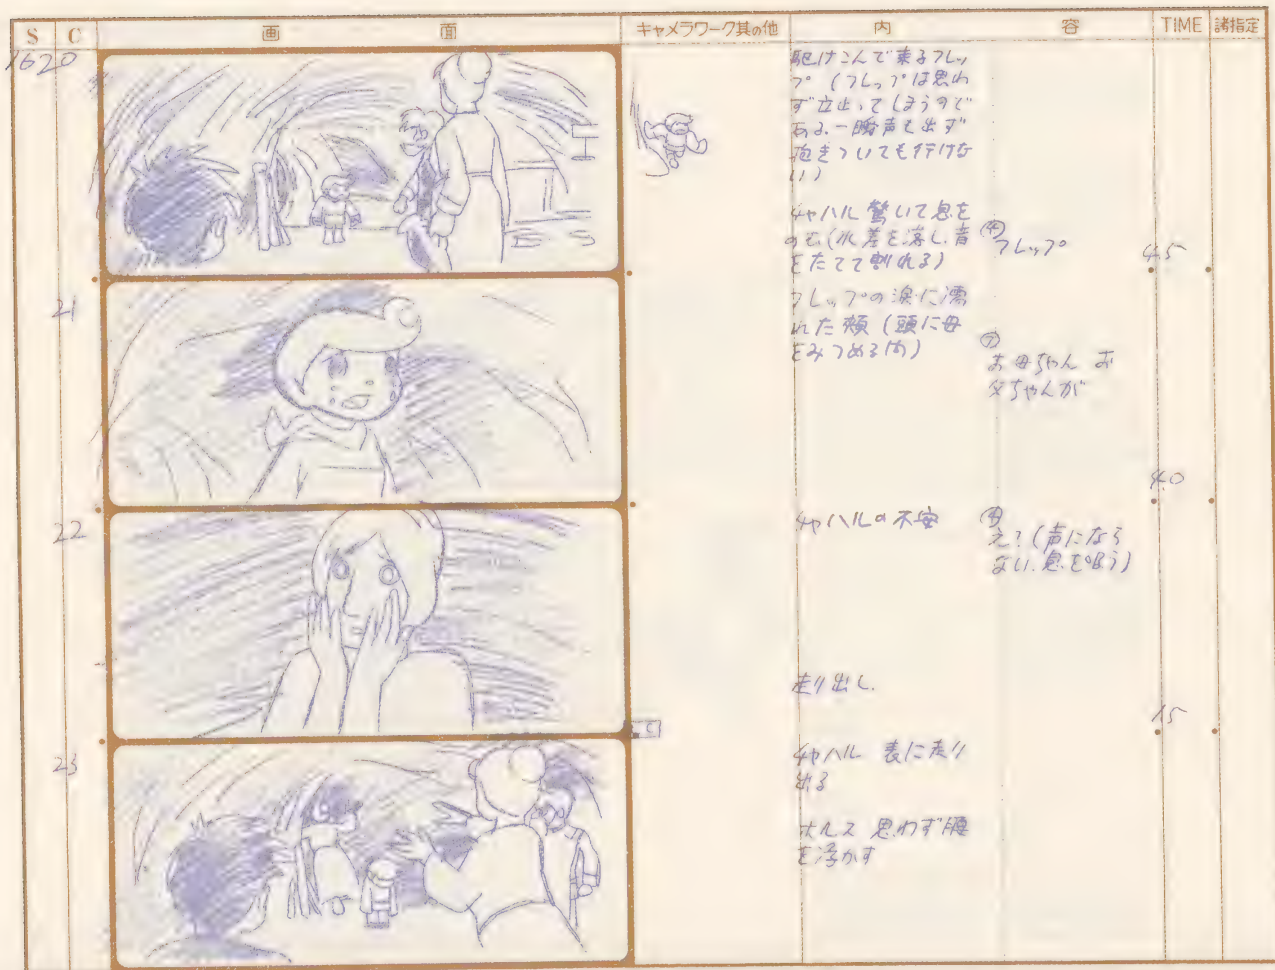 S C 画面 キャメラワーク其の他 内容 TIME 諸指定
1620
駆けこんで来るフレッ
プ (フレップは思わ
ず立止ってしまうので
ある一瞬声も出ず
抱きついても行けな
い)
チャハル驚いて息を
のむ(水差を落し、音
をたてて割れる)
フレップ
4.5
21
フレップの涙に濡
れた頬(頭に母
をみつめる
お母ちゃん お
父ちゃんが
4.0
22
チャハルの不安
え?(声になら
ない、息を吸う)
走り出し、
1.5
C
23
チャハル 表に走り
出る
ホルス 思わず腰
を浮かす